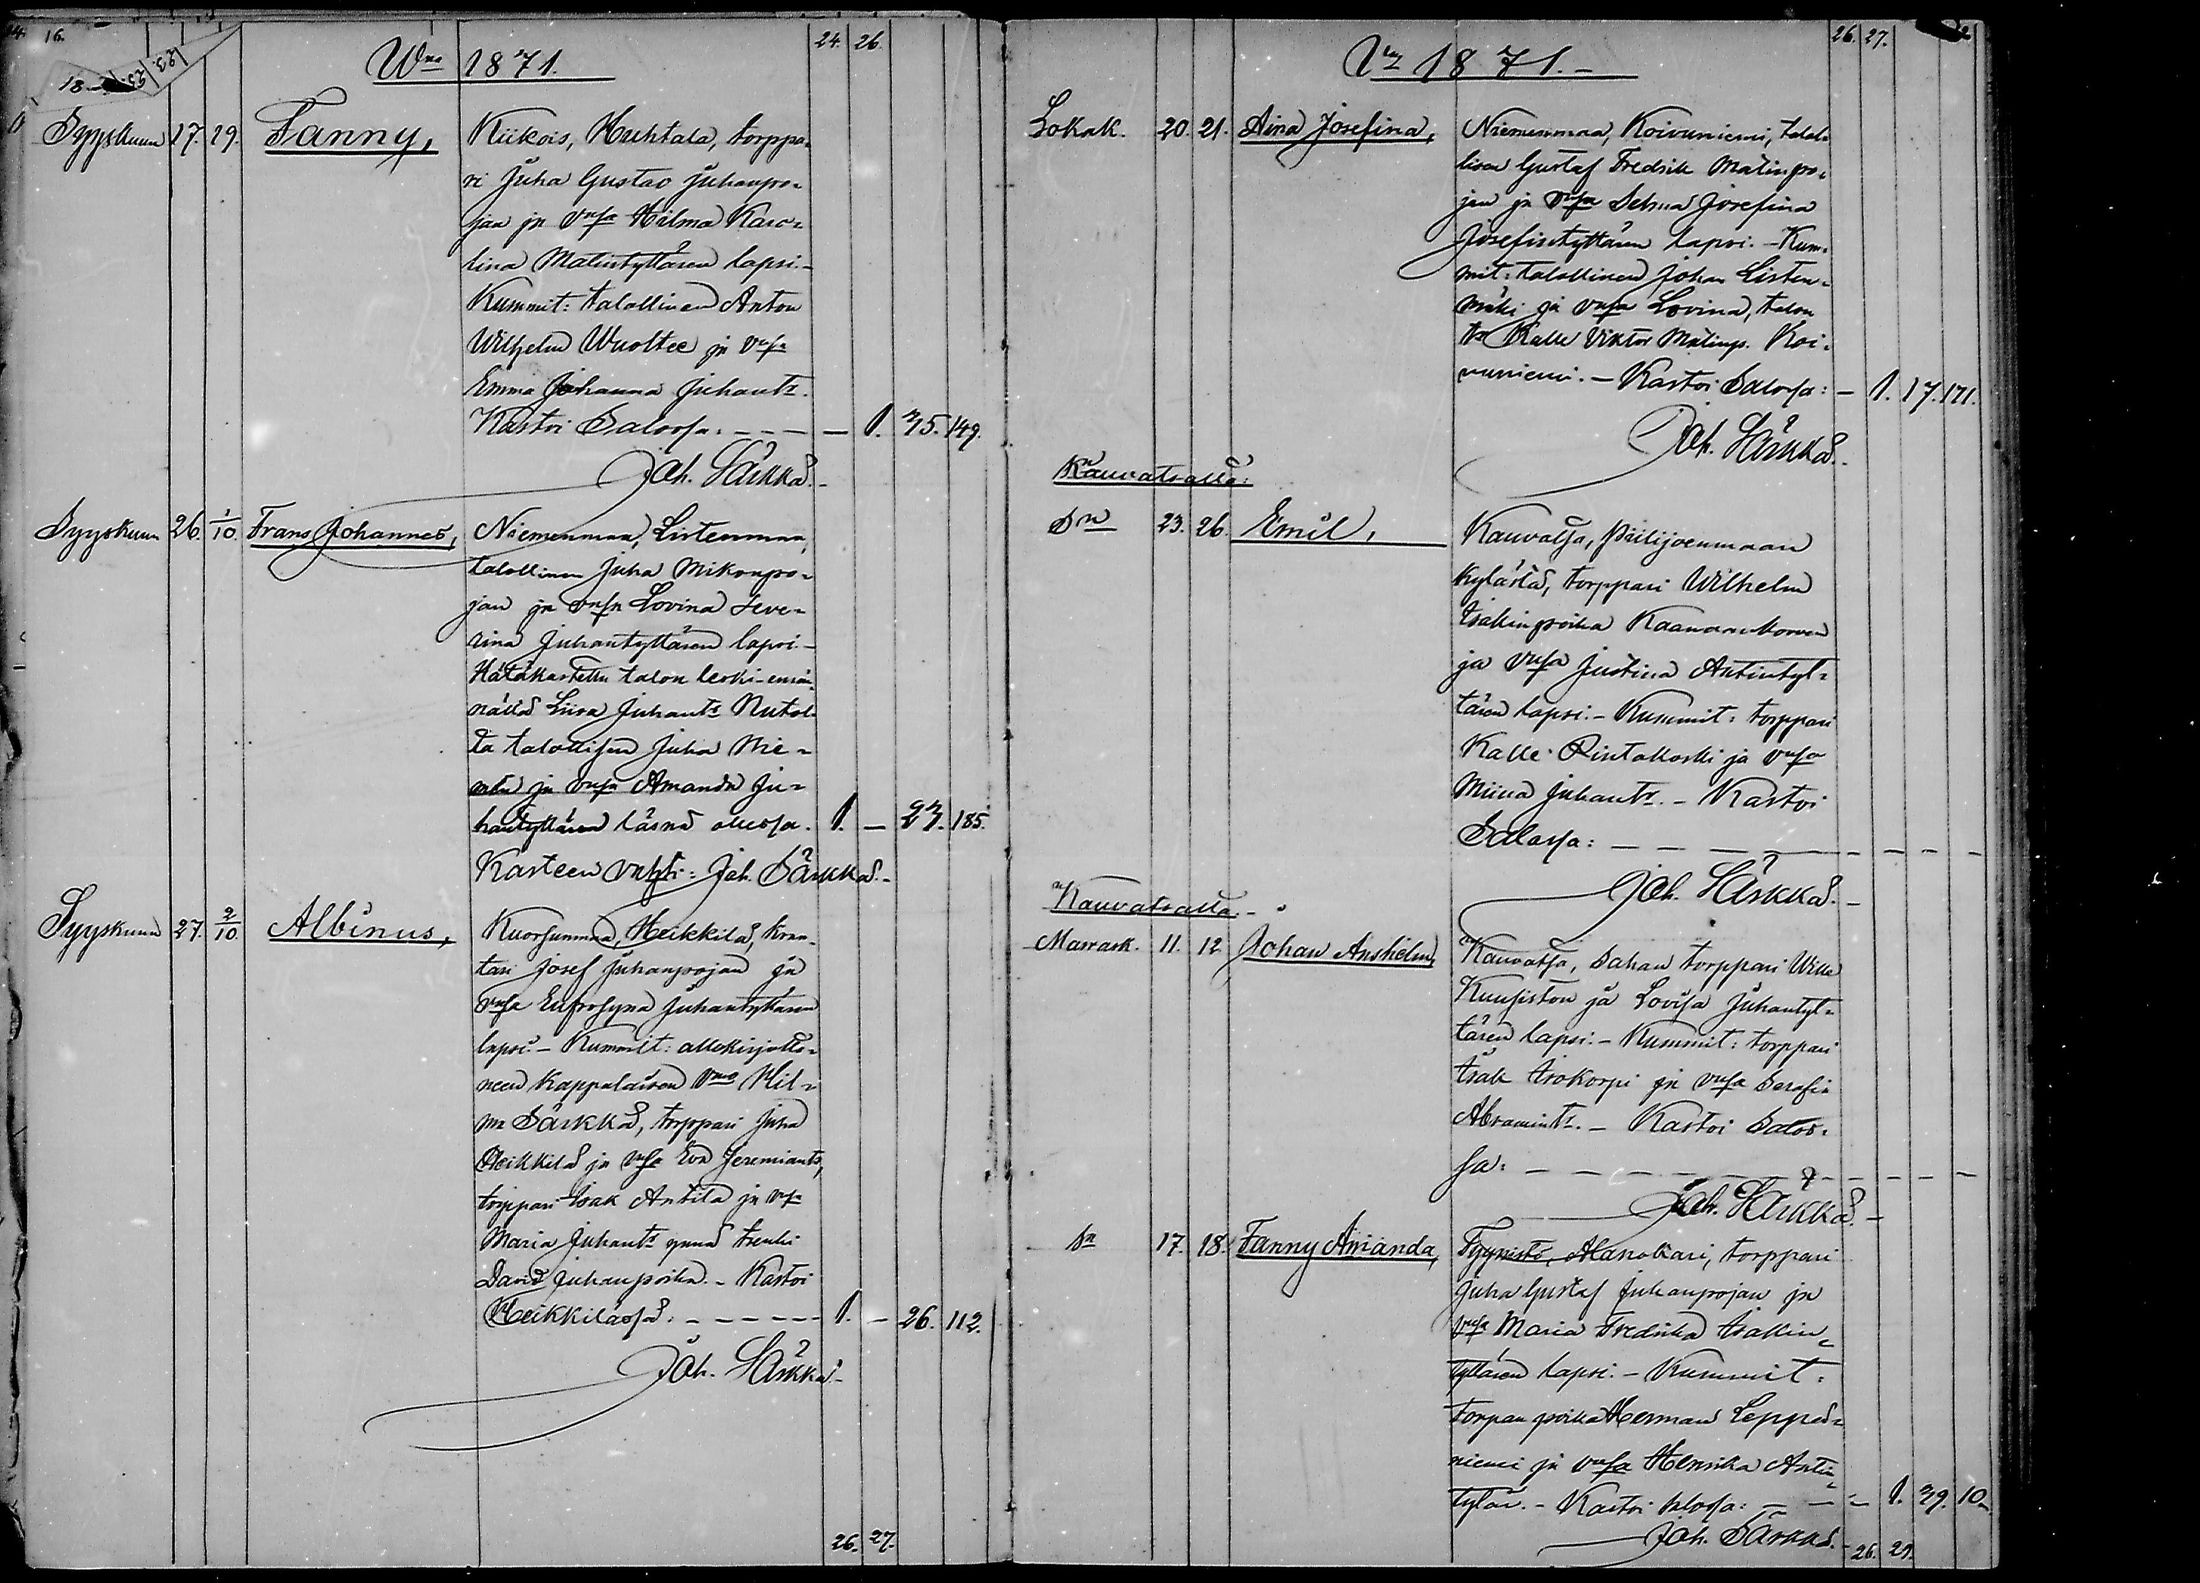 24. 16.
18 23. 23.
Wna 1871.
24. 26.
Syyskuun 17. 29. Fanny,
Kiikois, Huhtala, torppa-
ri Juha Gustav Juhanpo-
jan ja vmsa Hilma Karo-
lina Matintyttären lapsi.-
Kummit: talollinen Anton
Wilhelm Wuoltee ja vmsa
Emma Johanna Juhantr.
Kastoi Salossa: - - - — 1. 35. 149.
Joh. Särkkä.-
Syyskuun 26. 1/10. Frans Johannes,
Niemenmaa, Listenmaa,
talollinen Juha Mikonpo-
jan ja vmsa Lovina Seve-
rina Juhantyttären lapsi.-
Hätäkastettu talon leski-emän-
nältä Liisa Juhantr
ta talollisen Juha Nie-
ja vmsa Amanda Ju-
hantyttären läsnä ollessa. 1. — 185.
Kasteen vahti: Joh. Särkkä.-
Syyskuun 27. 2/10. Albinus,
Kuorsunmaa, Heikkilä, kraa-
tari Josef Juhanpojan ja
vmsa Eufrosyna Juhantyttären
lapsi.- Kummit: allekirjotta-
neen Kappalaisen vmo Hil-
ma Särkkä, torppari Juha
Heikkilä ja vmsa Eva Jeremiantr,
torppari Isak Antila ja vmsa
Maria Juhantr ynnä trenki
David Juhanpoika.- Kastoi
Heikkilässä: - - - - - 1. — 26. 112.
Joh. Särkkä.-
26. 27.
Vna 1871.-
26. 27.
Lokak. 20. 21. Aina Josefina,
Niemenmaa, Koivuniemi, talol-
lisen Gustaf Fredrik Matinpo-
jan ja vmsa Selma Josefina
Josefintyttären lapsi.- Kum-
mit: talollinen Johan Listen-
mäki ja vmsa Lovina, talon
Kalle Viktor Matinp. Koi-
vuniemi.- Kastoi Salossa: — 1. 17. 171.
Joh. Särkkä.-
Kauvatsalla:
Dn 23. 26. Emil,
Kauvatsa, Piilijoenmaan
kylästä, torppari Wilhelm
Isakinpoika Kaanaankorven
ja vmsa Justina Antintyt-
tären lapsi.- Kummit: torppari
Kalle Rintakoski ja vmsa
Miina Juhantr.- Kastoi
Salossa: — — — — — —
Joh. Särkkä.-
Kauvatsalla.-
Marrask. 11. 12. Johan Anshelm,
Kauvatsa, Sahan torppari Wille
Kuusiston ja Lovisa Juhantyt-
tären lapsi.- Kummit: torppari
Isak Isokorpi ja vmsa Serafia
Abramintr.- Kastoi Salos-
sa: — — — — — —
Joh. Särkkä.-
Dn 17. 18. Fanny Amanda,
Tyynistö, Alanokari, torppari
Juha Gustaf Juhanpojan ja
vmsa Maria Fredrika Isakin-
tyttären lapsi.- Kummit:
torpan poika Herman Leppä-
niemi ja vmsa Henrika Antin-
tytär.- Kastoi salossa: — — 1. 39. 10.
Joh. Särkkä.-
26. 27.